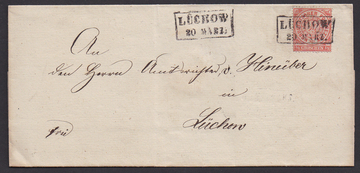 LÜCHOW
20 MÄRZ.
LÜCHOW
20 MÄRZ.
An
den Herrn Amtsrichter v. Hinüber
in
Lüchow
frei